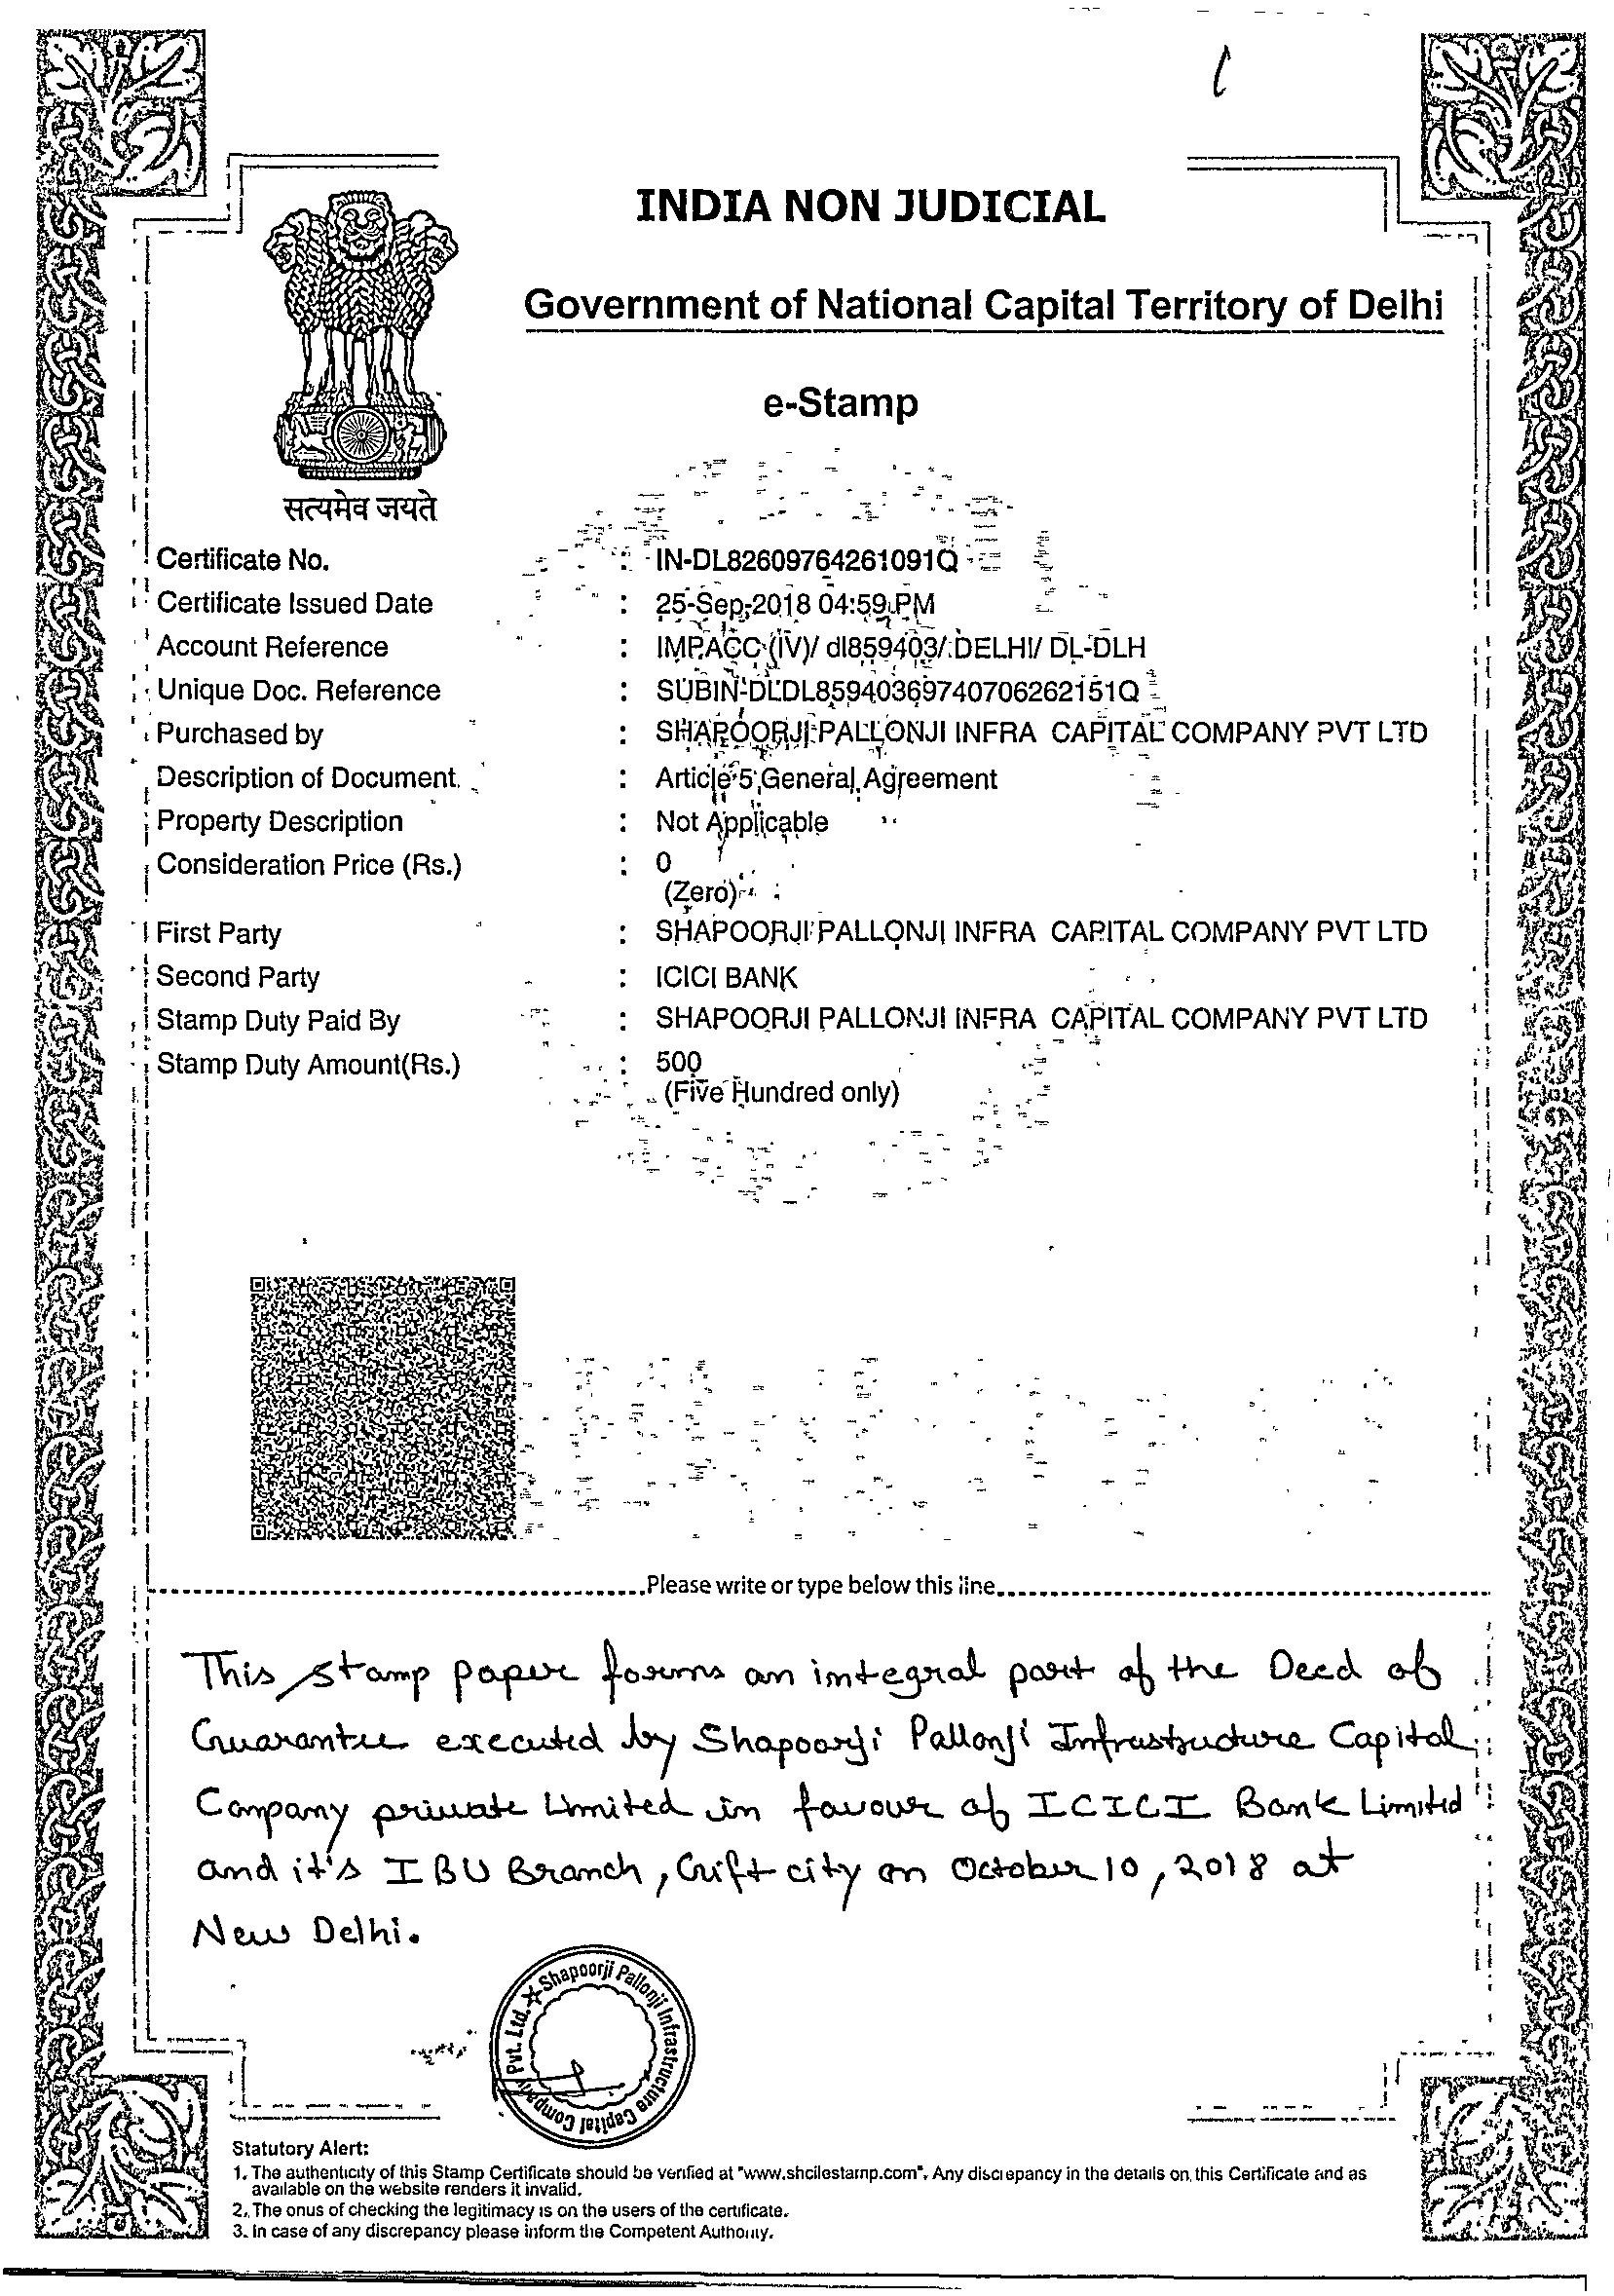 INDIA NON JUDICIAL
Government of National Capital Territory of Delhi
e-Stamp
सत्यमेव जयते
Certificate No. : IN-DL82609764261091Q
Certificate Issued Date : 25-Sep-2018 04:59 PM
Account Reference : IMPACC (IV)/ dl859403/ DELHI/ DL-DLH
Unique Doc. Reference : SUBIN-DLDL85940369740706262151Q
Purchased by : SHAPOORJI PALLONJI INFRA CAPITAL COMPANY PVT LTD
Description of Document : Article 5 General Agreement
Property Description : Not Applicable
Consideration Price (Rs.) : 0
(Zero)
First Party : SHAPOORJI PALLONJI INFRA CAPITAL COMPANY PVT LTD
Second Party : ICICI BANK
Stamp Duty Paid By : SHAPOORJI PALLONJI INFRA CAPITAL COMPANY PVT LTD
Stamp Duty Amount(Rs.) : 500
(Five Hundred only)
Please write or type below this line
This stamp paper forms an integral part of the Deed of
Guarantee executed by Shapoorji Pallonji Infrastructure Capital
Company private Limited in favour of ICICI Bank Limited
and it's IBU Branch, Gift city on October 10, 2018 at
New Delhi.
Shapoorji Pallonji Infrastructure Capital Company Pvt. Ltd.
Statutory Alert:
1. The authenticity of this Stamp Certificate should be verified at "www.shcilestamp.com". Any discrepancy in the details on this Certificate and as
available on the website renders it invalid.
2. The onus of checking the legitimacy is on the users of the certificate.
3. In case of any discrepancy please inform the Competent Authority.